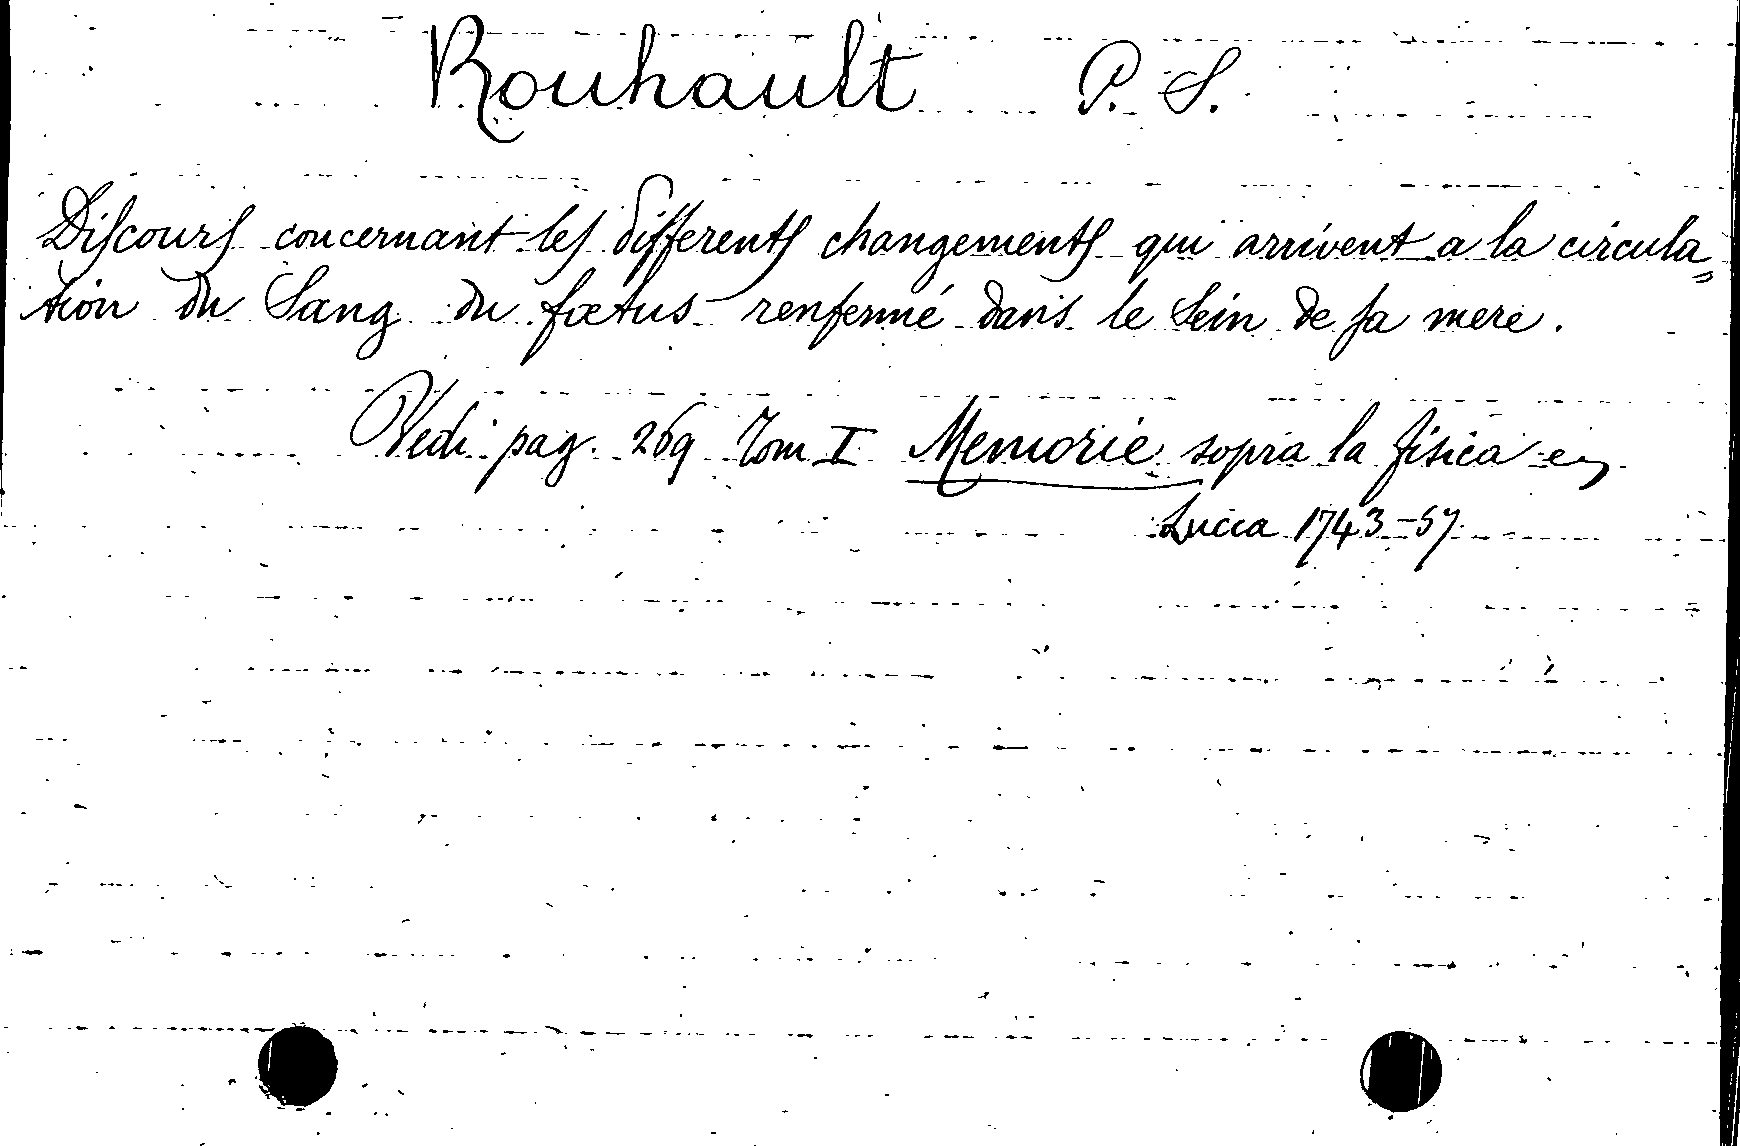 Rouhault P. S.
Discours concernant les differents changements qui arrivent a la circula„
tion du Sang du fœtus renfermé dans le Sein de sa mere.
Vedi pag. 269 Tom I Memorie sopra la fisica
Lucca 1743-57.